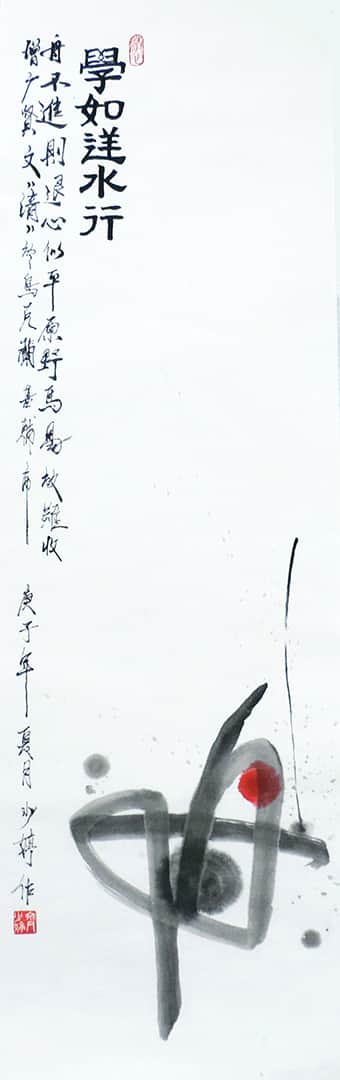 學如逆水行
舟不進則退心似平原野馬易放難收
增广賢文“清”於烏克蘭基輔市 庚子年夏月少婷作